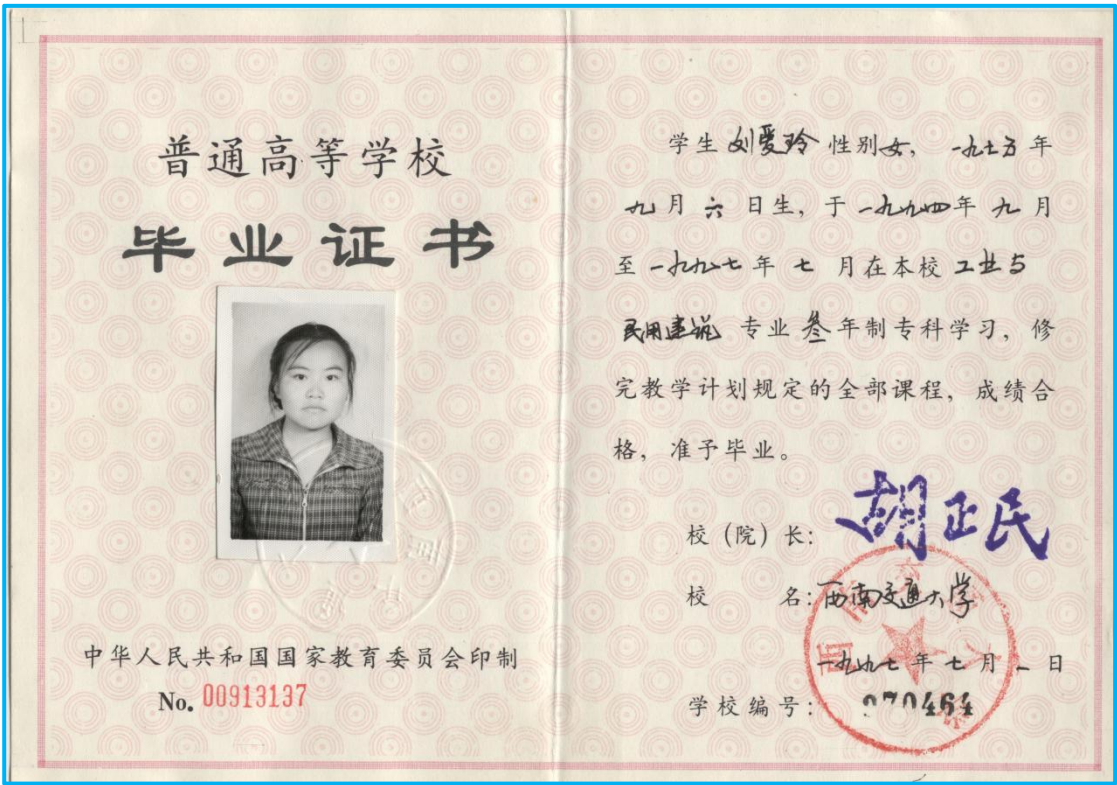 普通高等学校
毕业证书
中华人民共和国国家教育委员会印制
No. 00913137
学生 刘爱玲 性别女, 一九七五年
九月 六 日生, 于 一九九四年 九 月
至 一九九七 年 七 月在本校 工业与
民用建筑 专业 叁 年制专科学习, 修
完教学计划规定的全部课程, 成绩合
格, 准予毕业。
校(院)长: 胡正民
校 名: 西南交通大学
一九九七 年 七 月 一 日
学校编号: 970464